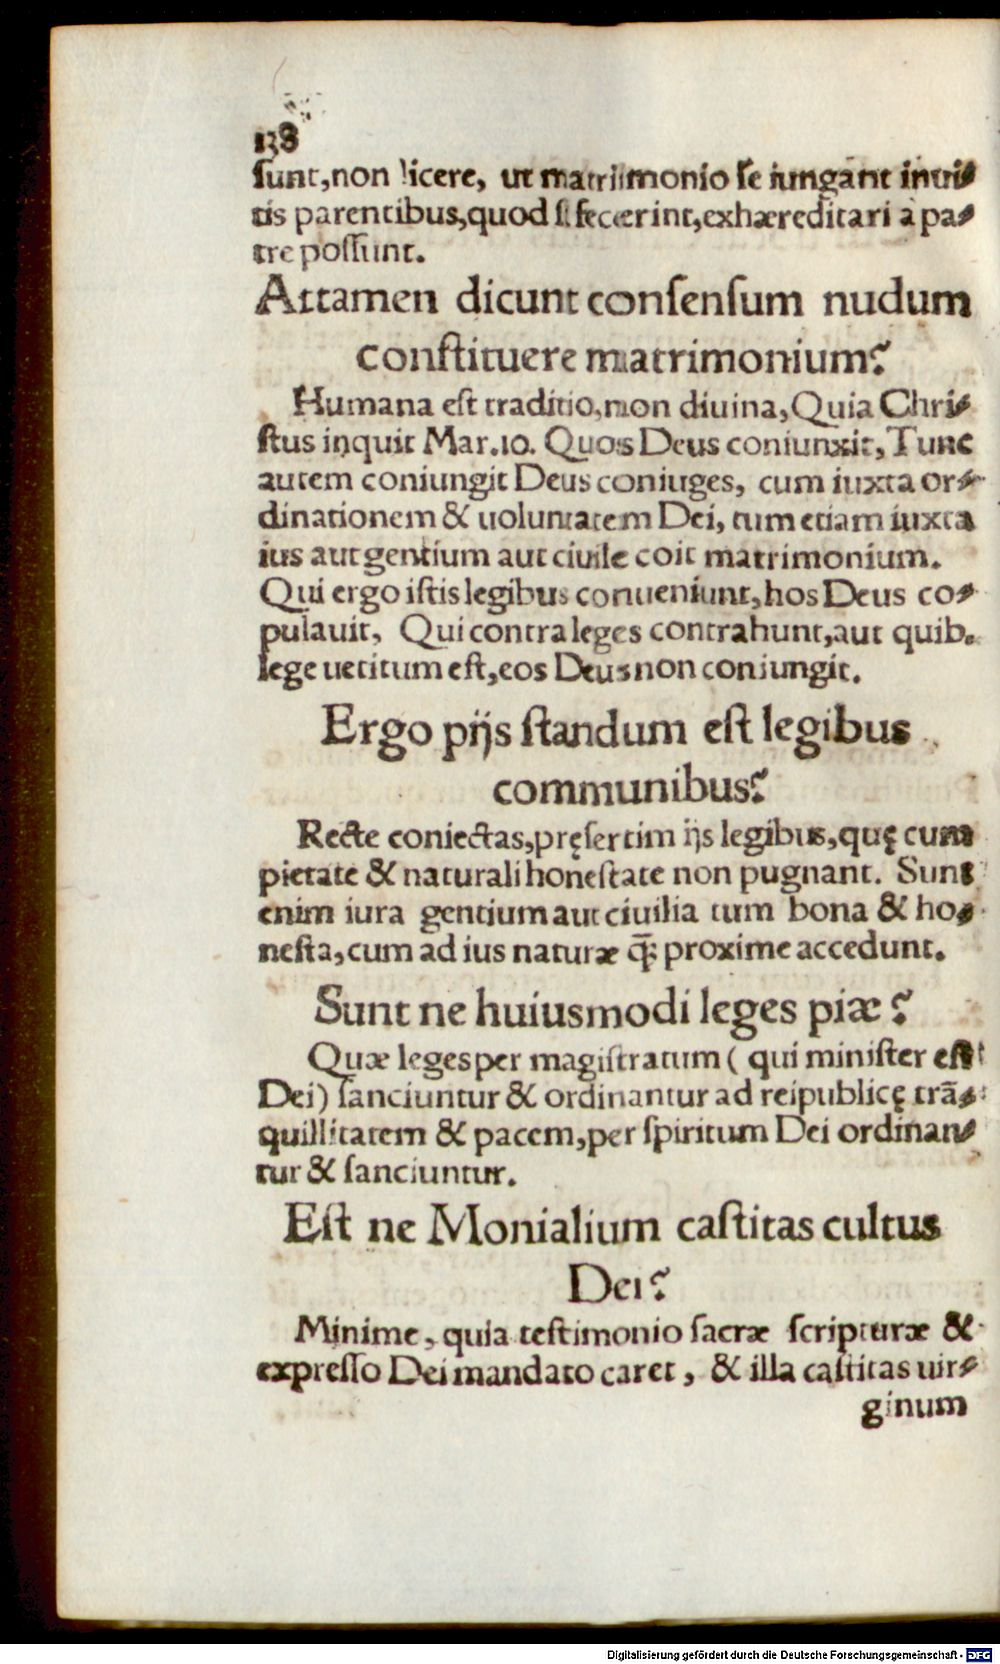 138
sunt, non licere, ut matrimonio se iungant inui⸗
tis parentibus, quod si fecerint, exhæreditari à pa⸗
tre possunt.
Attamen dicunt consensum nudum
constituere matrimonium?
Humana est traditio, non diuina, Quia Chri⸗
stus inquit Mar. 10. Quos Deus coniunxit, Tunc
autem coniungit Deus coniuges, cum iuxta or⸗
dinationem & uoluntatem Dei, tum etiam iuxta
ius aut gentium aut ciuile coit matrimonium.
Qui ergo istis legibus conueniunt, hos Deus co⸗
pulauit, Qui contra leges contrahunt, aut quib.
lege uetitum est, eos Deus non coniungit.
Ergo pijs standum est legibus
communibus?
Recte coniectas, pręsertim ijs legibus, quę cum
pietate & naturali honestate non pugnant. Sunt
enim iura gentium aut ciuilia tum bona & ho⸗
nesta, cum ad ius naturæ q̃; proxime accedunt.
Sunt ne huiusmodi leges piæ?
Quæ leges per magistratum ( qui minister est
Dei) sanciuntur & ordinantur ad reipublicę trã⸗
quillitatem & pacem, per spiritum Dei ordinan⸗
tur & sanciuntur.
Est ne Monialium castitas cultus
Dei?
Minime, quia testimonio sacræ scripturæ &
expresso Dei mandato caret, & illa castitas uir⸗
ginum
Digitalisierung gefördert durch die Deutsche Forschungsgemeinschaft - DFG